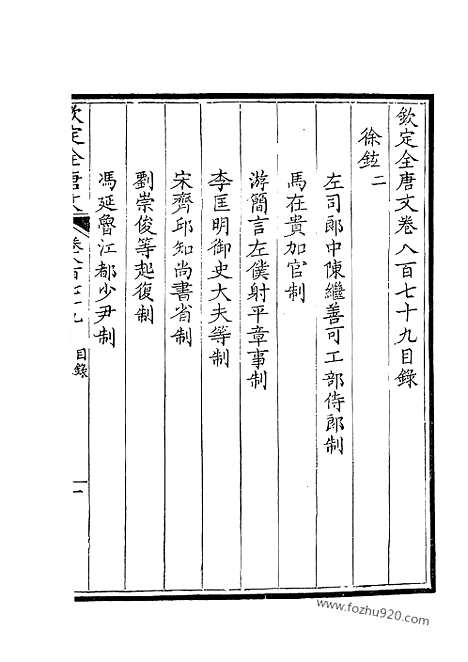 欽定全唐文卷八百七十九目錄
徐鉉二
左司郎中陳繼善可工部侍郎制
馬在貴加官制
游簡言左僕射平章事制
李匡明御史大夫等制
宋齊邱知尚書省制
劉崇俊等起復制
馮延魯江都少尹制
欽定全唐文 卷八百七十九 目錄 一
www.fozhu920.com